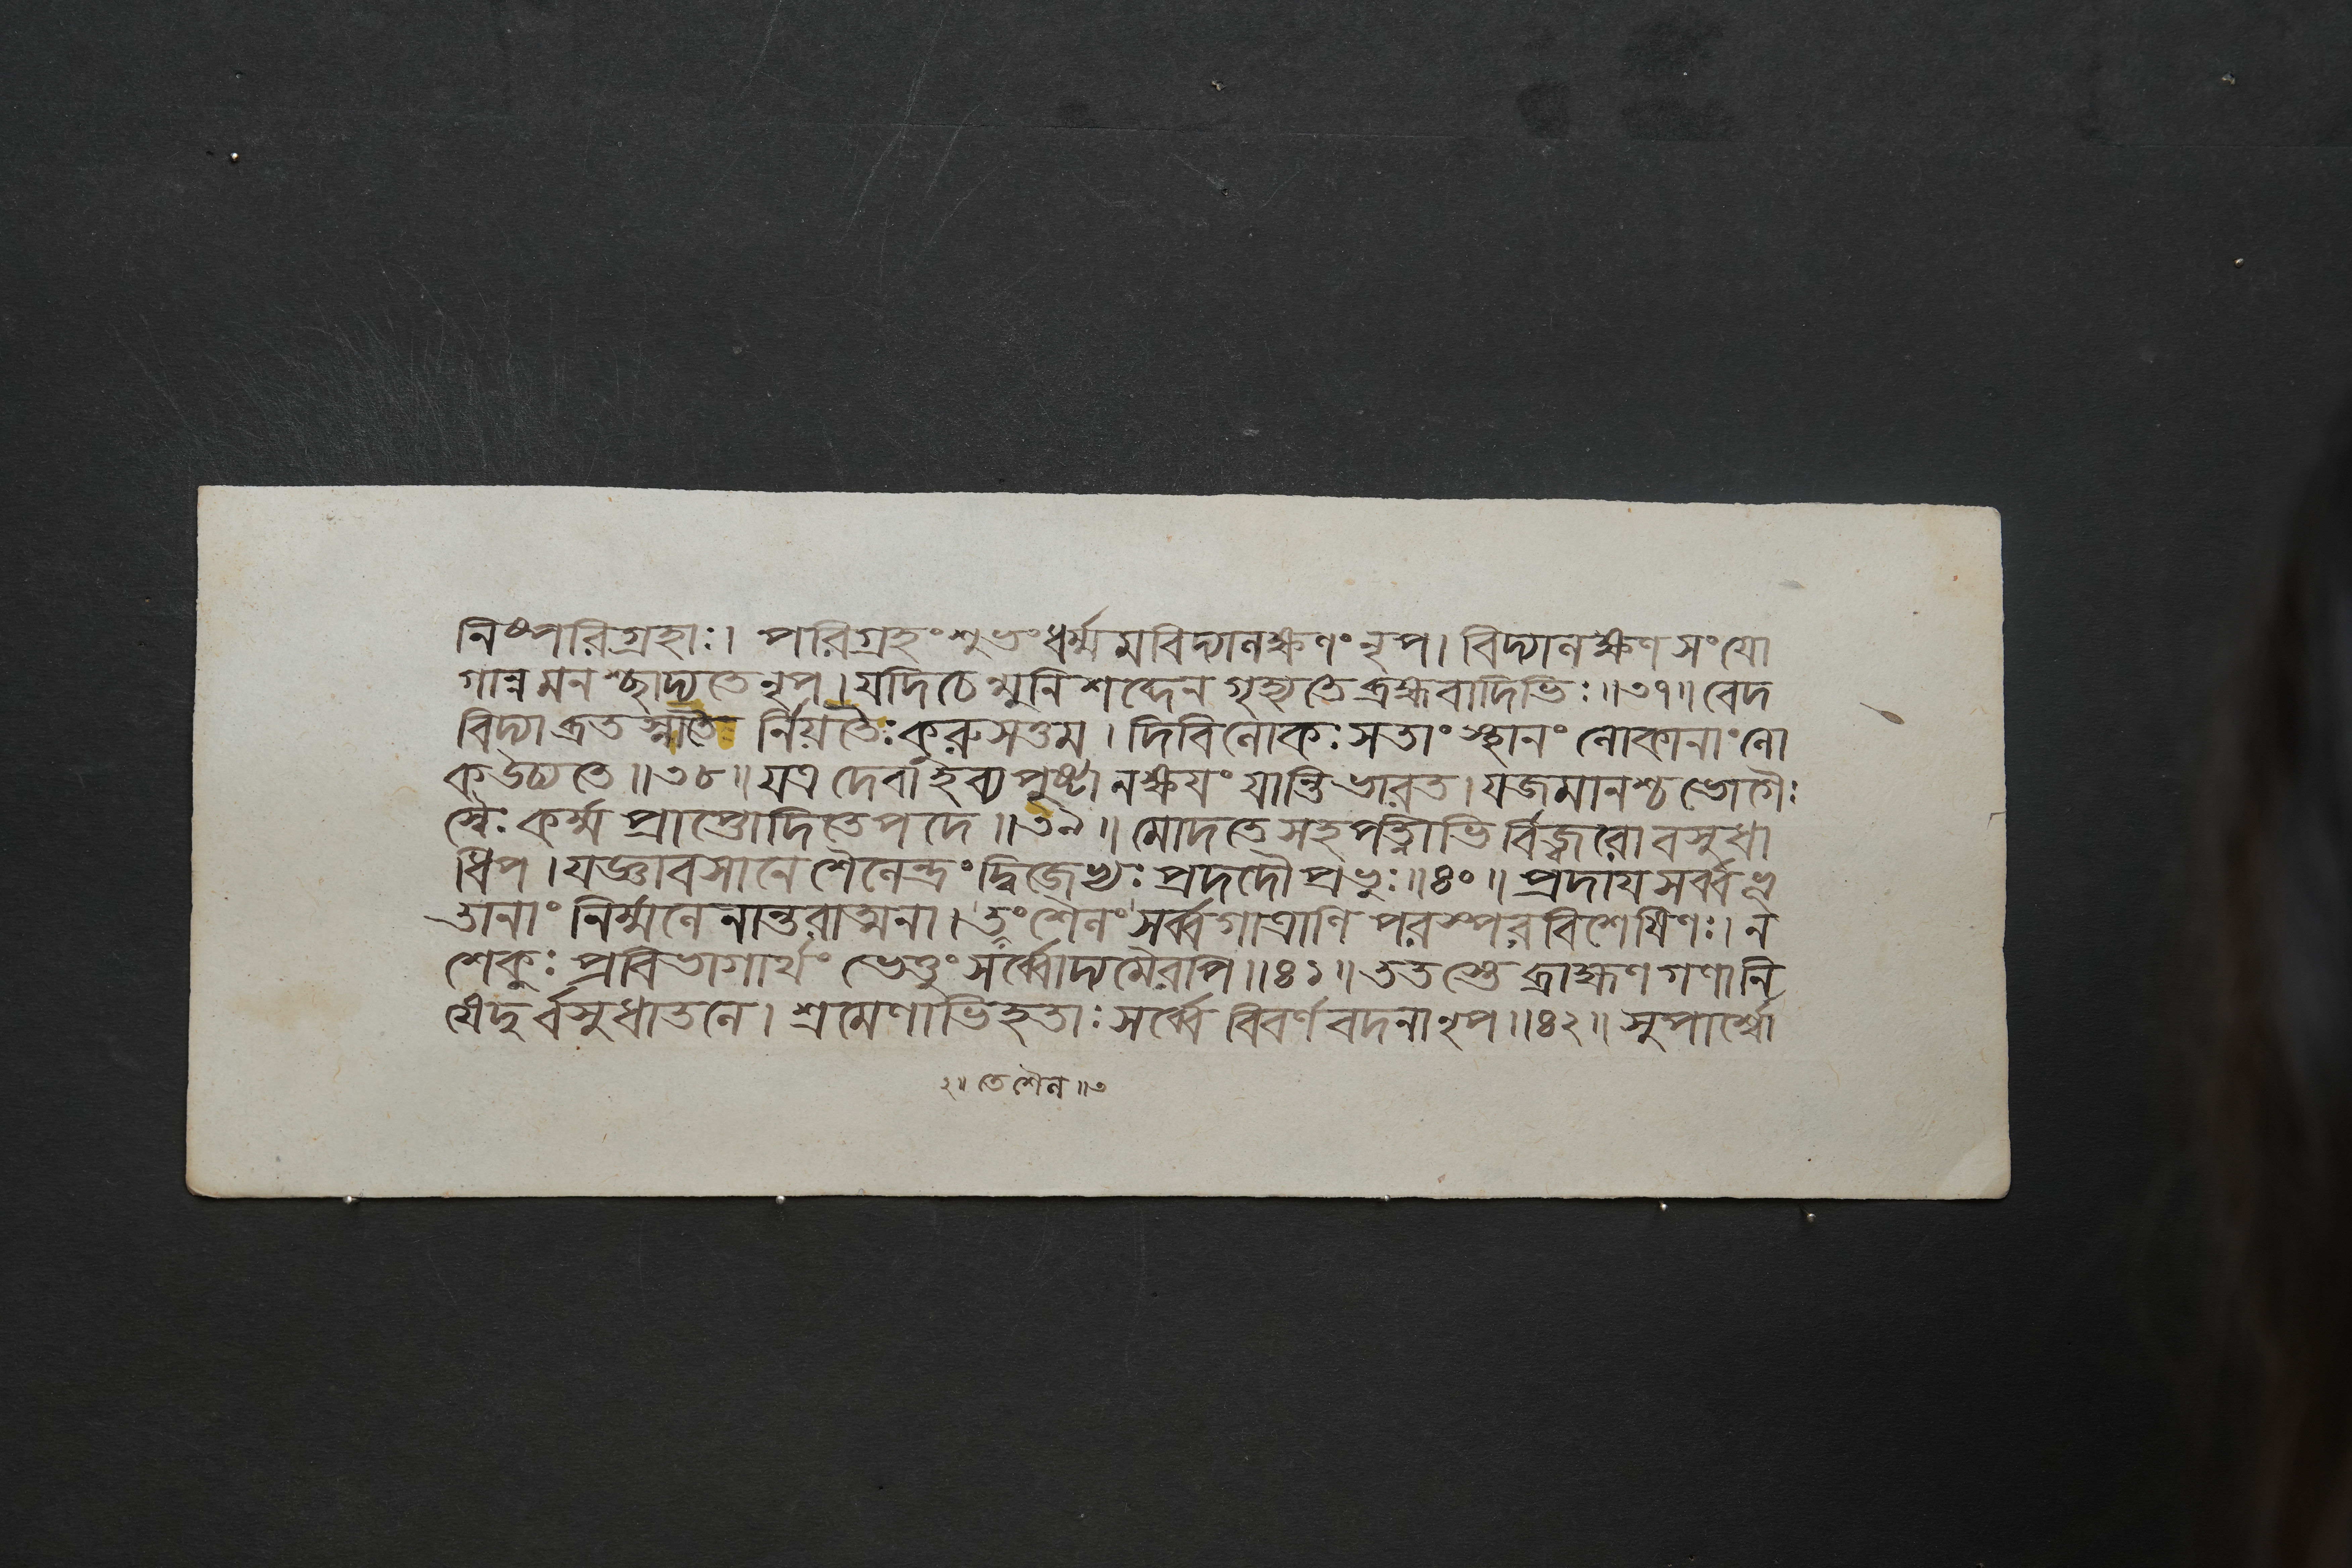 নিষ্পরিগ্রহাঃ। পরিগ্রহং শুভং ধর্ম্মমবিদ্যালক্ষণং নৃপ। বিদ্যালক্ষণসংযো
গান্নমনশ্ছাদ্যতে নৃপ। যদি চেন্মুনিশব্দেন গৃহ্যতে ব্রহ্মবাদিভিঃ॥৩৭॥ বেদ
বিদ্যাব্রতস্নাতৈ র্নিয়তৈঃ কুরুসত্তম। দিবি লোকঃ সতাং স্থানং লোকানাং লো
ক উচ্যতে॥৩৮॥ যত্র দেবা হব্যপুষ্টা ন ক্ষয়ং যান্তি ভারত। যজমানশ্চ ভোগৈঃ
স্বৈঃ কর্ম্মপ্রাপ্তোদিতে পদে॥৩৯॥ মোদতে সহ পত্নীভির্বিজ্বরো বসুধা
ধিপ। যজ্ঞাবসানে শৈলেন্দ্রং দ্বিজেভ্যঃ প্রদদৌ প্রভুঃ॥৪০॥ প্রদায় সর্ব্বভূ
তানাং নির্ম্মলেনান্তরাত্মনা। তং শৈলং সর্ব্বগাত্রাণি পরস্পরবিশেষিণঃ। ন
শেকুঃ প্রবিভাগার্থং ভেত্তুং সর্ব্বোদ্যমৈরপি॥৪১॥ ততস্তে ব্রাহ্মণগণা নি
ষেদুর্বসুধাতলে। শ্রমেণাভিহতাঃ সর্ব্বে বিবর্ণবদনা নৃপ॥৪২॥ সুপার্শ্বো
২॥ তে শৈল॥৩